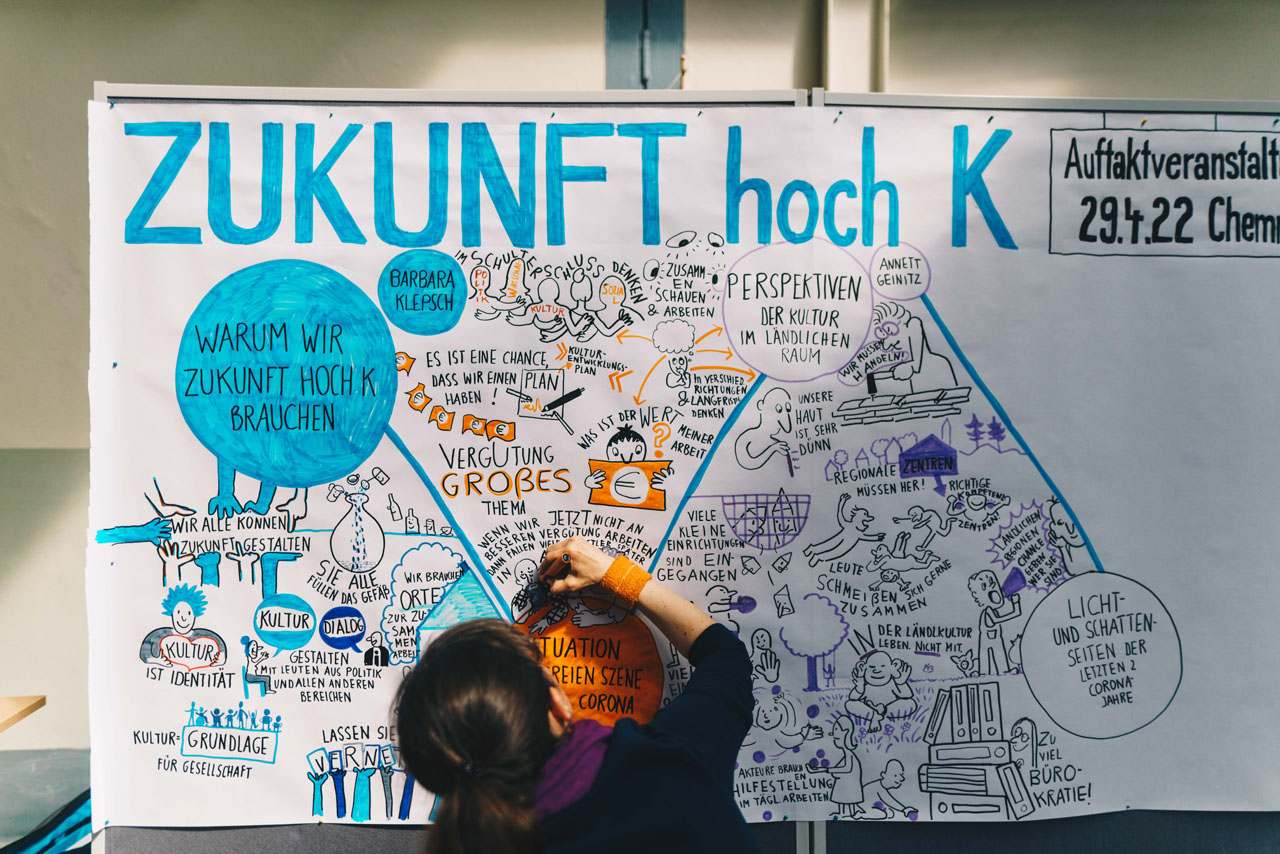 ZUKUNFT hoch K
Auftaktveranstalt
29.4.22 Chemn
WARUM WIR
ZUKUNFT HOCH K
BRAUCHEN
BARBARA
KLEPSCH
IM SCHULTERSCHLUSS DENKEN
POLITIK
KULTUR
SOZIAL
ZUSAMM
EN
SCHAUEN
& ARBEITEN
ES IST EINE CHANCE,
DASS WIR EINEN PLAN
HABEN !
KULTUR-
ENTWICKLUNGS-
PLAN
IN VERSCHIED
RICHTUNGEN
& LANGFRIS
DENKEN
WAS IST DER WERT
MEINER
ARBEIT
?
€
VERGÜTUNG
GROßES
THEMA
WENN WIR JETZT NICHT AN
BESSEREN VERGÜTUNG ARBEITEN
DANN FALLEN VIELE
SPÄTER
IN
WIR ALLE KÖNNEN
ZUKUNFT GESTALTEN
SIE ALLE
FÜLLEN DAS GEFÄß
WIR BRAUCHEN
ORTE
ZUR ZU-
SAM
MEN
ARBEIT
KULTUR
IST IDENTITÄT
KULTUR
DIALOG
GESTALTEN
MIT LEUTEN AUS POLITIK
UND ALLEN ANDEREN
BEREICHEN
KULTUR= GRUNDLAGE
FÜR GESELLSCHAFT
LASSEN SIE
VERNE
TUATION
REIEN SZENE
CORONA
PERSPEKTIVEN
DER KULTUR
IM LÄNDLICHEN
RAUM
ANNETT
GEINITZ
WIR MÜSSEN
HANDELN!
UNSERE
HAUT
IST SEHR
DÜNN
REGIONALE ZENTREN
MÜSSEN HER!
RICHTIGE
KOMPETENZ
ZENTREN
VIELE
KLEINE
EINRICHTUNGEN
SIND EIN-
GEGANGEN
LEUTE
SCHMEIßEN SICH GERNE
ZUSAMMEN
IN
REGIONEN
WER SIE
SIND
DER LÄNDLKULTUR
LEBEN. NICHT MIT
LICHT-
UND SCHATTEN-
SEITEN DER
LETZTEN 2
CORONA-
JAHRE
AKTEURE BRAUCH
EN
HILFESTELLUNG
IM TÄGL. ARBEITEN
ZU
VIEL
BÜRO-
KRATIE!